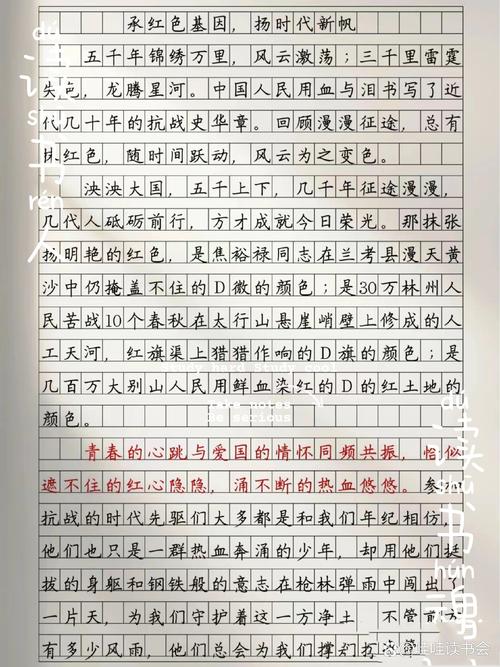 承红色基因，扬时代新帆
五千年锦绣万里，风云激荡；三千里雷霆
失色，龙腾星河。中国人民用血与泪书写了近
代几十年的抗战史华章。回顾漫漫征途，总有
抹红色，随时间跃动，风云为之变色。
泱泱大国，五千上下，几千年征途漫漫，
几代人砥砺前行，方才成就今日荣光。那抹张
扬明艳的红色，是焦裕禄同志在兰考县漫天黄
沙中仍掩盖不住的D徽的颜色；是30万林州人
民苦战10个春秋在太行山悬崖峭壁上修成的人
工天河，红旗渠上猎猎作响的D旗的颜色；是
几百万大别山人民用鲜血染红的D的红土地的
颜色。
青春的心跳与爱国的情怀同频共振，恰似
遮不住的红心隐隐，涌不断的热血悠悠。参加
抗战的时代先驱们大多都是和我们年纪相仿，
他们也只是一群热血奔涌的少年，却用他们挺
拔的身躯和钢铁般的意志在枪林弹雨中闯出了
一片天，为我们守护着这一方净土 不管前方
有多少风雨，他们总会为我们撑
dú
读
shū
书
rén
人
Study hard Study cool
Take notes
Be serious
dú
读
shū
书
hún
魂
哇读书会